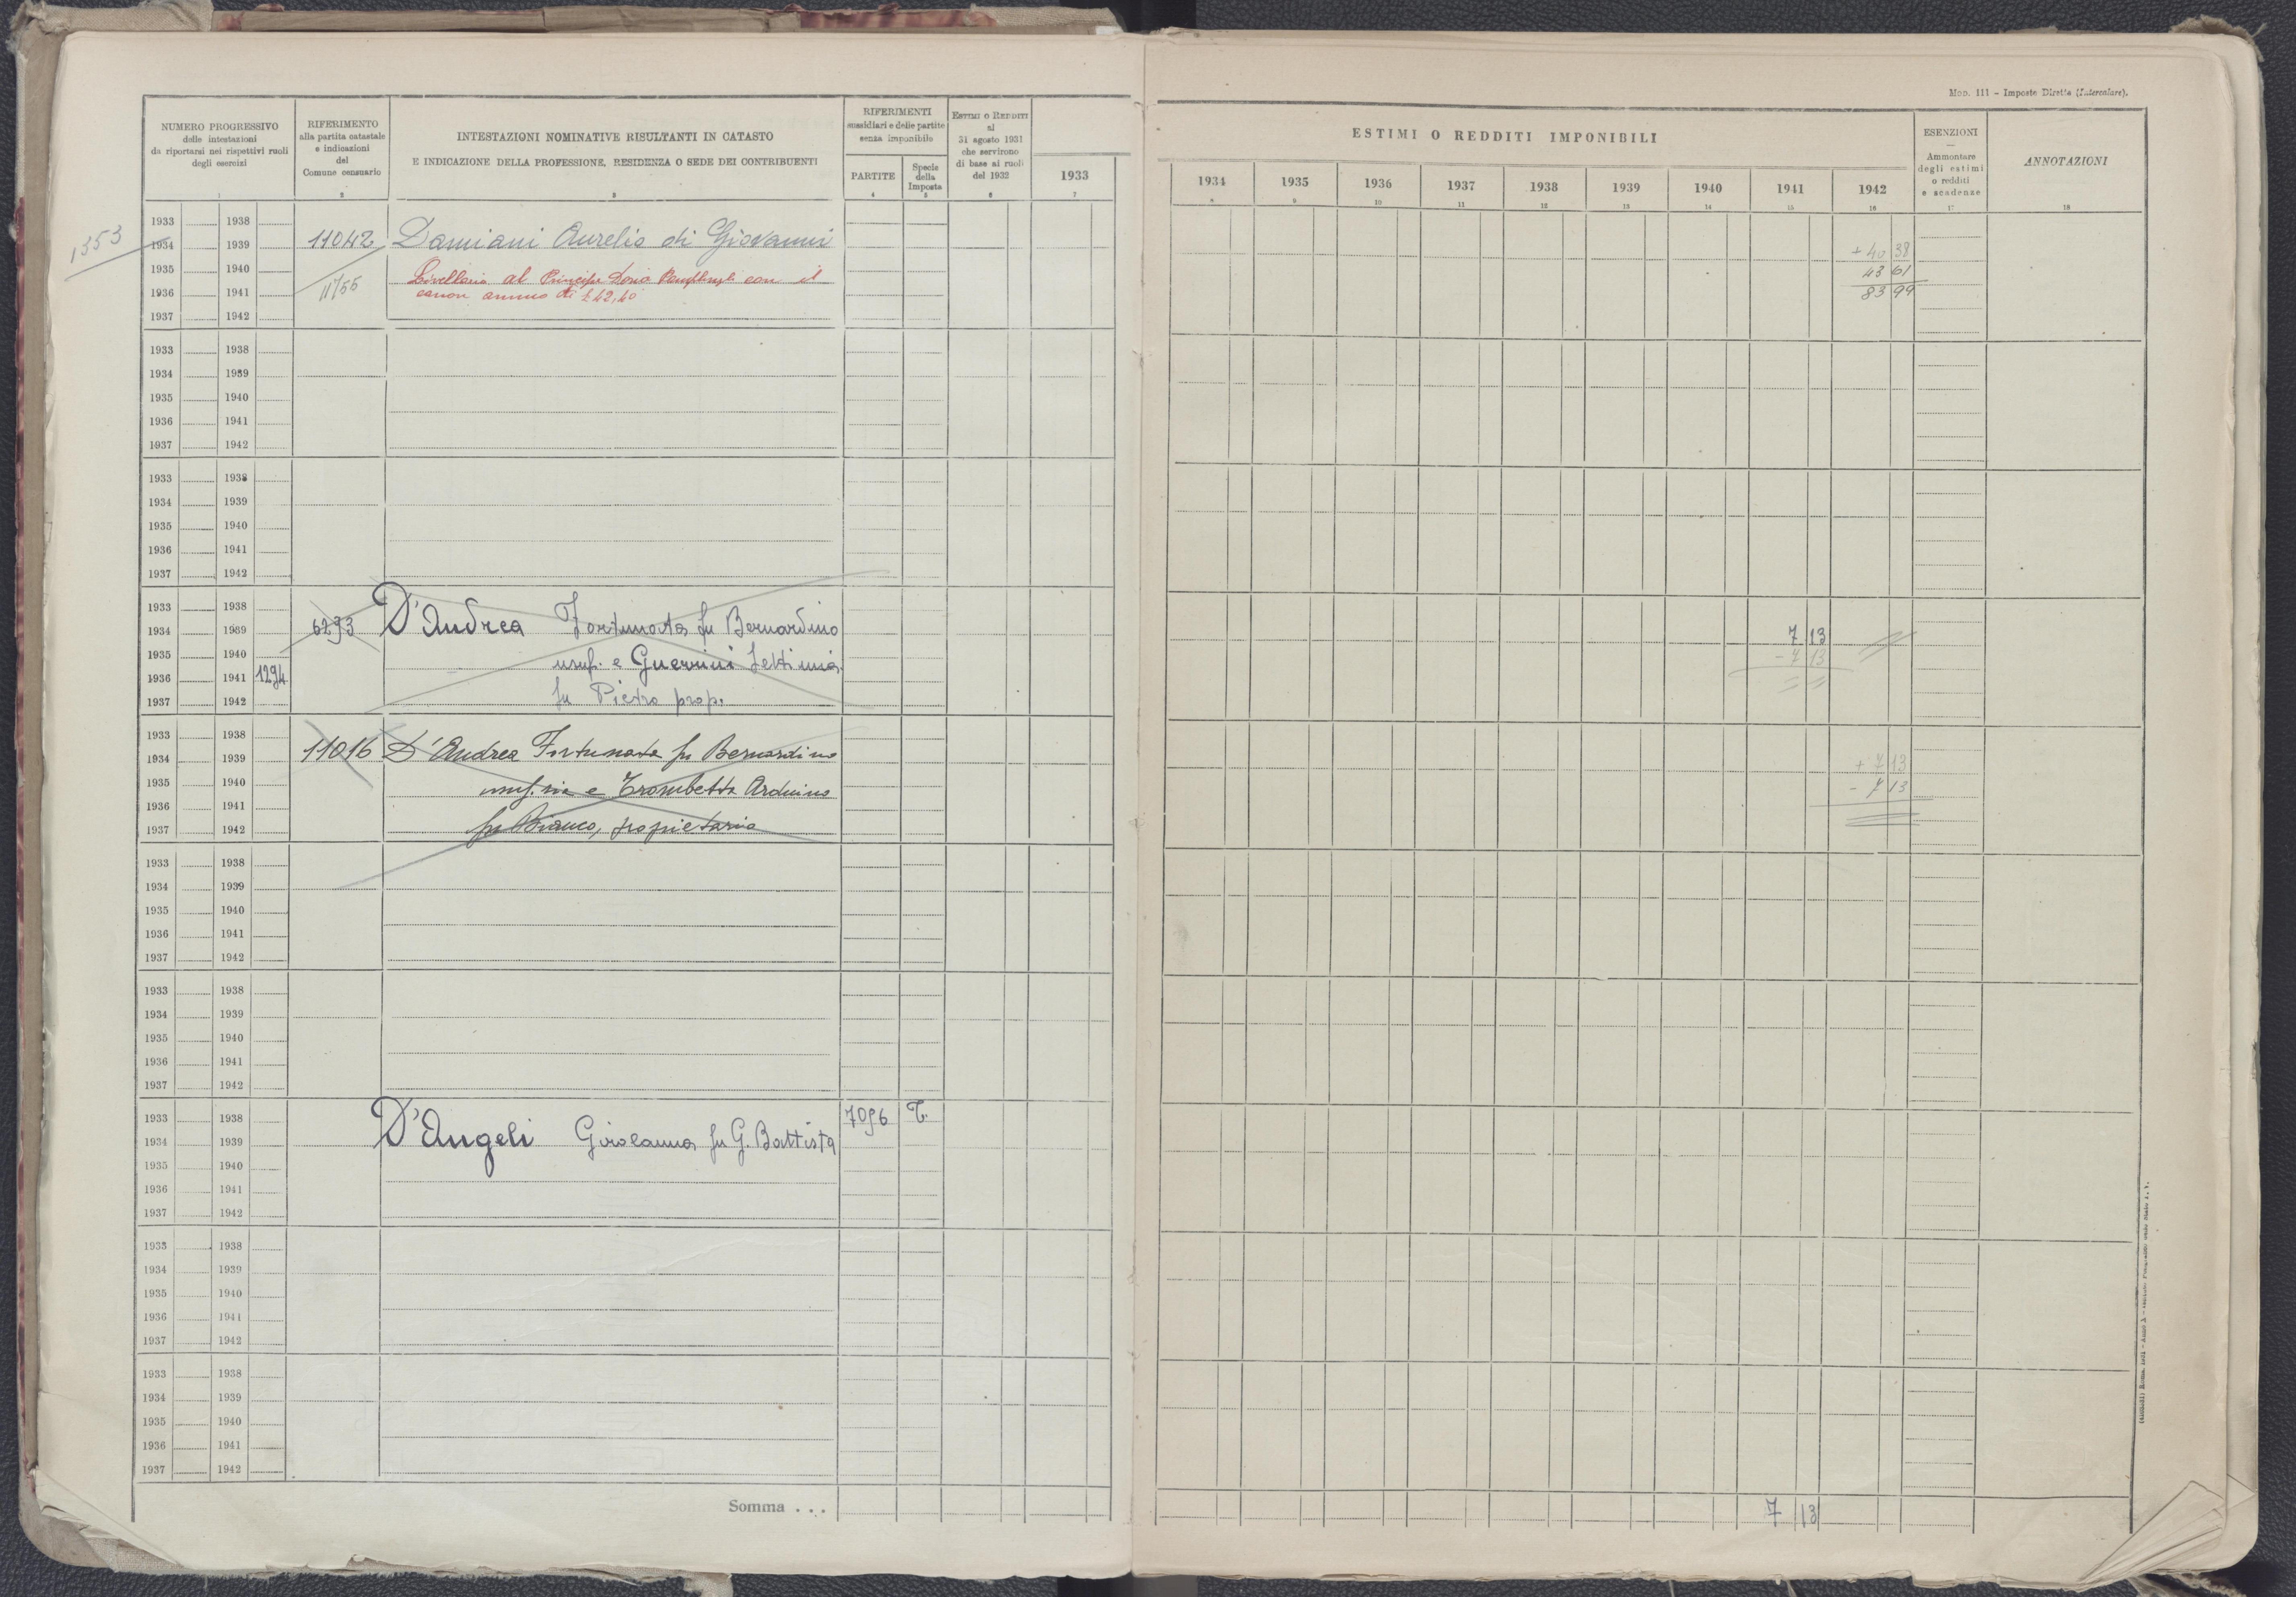 Mod. 111 - Imposte Dirette (Intercalare).
NUMERO PROGRESSIVO
delle intestazioni
da riportarsi nei rispettivi ruoli
degli esercizi
1
RIFERIMENTO
alla partita catastale
e indicazioni
del
Comune censuario
2
INTESTAZIONI NOMINATIVE RISULTANTI IN CATASTO
E INDICAZIONE DELLA PROFESSIONE, RESIDENZA O SEDE DEI CONTRIBUENTI
3
RIFERIMENTI
sussidiari e delle partite
senza imponibile
PARTITE
4
Specie
della
Imposta
5
Estimi o Redditi
al
31 agosto 1931
che servirono
di base ai ruoli
del 1932
6
ESTIMI O REDDITI IMPONIBILI
1933 1934 1935 1936 1937 1938 1939 1940 1941 1942
7 8 9 10 11 12 13 14 15 16
ESENZIONI
—
Ammontare
degli estimi
o redditi
e scadenze
17
ANNOTAZIONI
18
1353
1933 1938
1934 1939 11042 Damiani Aurelio di Giovanni + 40 38
1935 1940 11155 Livellario al Principe Doria Pamphyli con il 43 61
1936 1941 canon annuo di £ 42,40 83 99
1937 1942
1933 1938
1934 1939
1935 1940
1936 1941
1937 1942
1933 1938
1934 1939
1935 1940
1936 1941
1937 1942
1933 1938
1934 1939 6293 D'Andrea Fortunata fu Bernardino 7 13
1935 1940 usuf. e Guerrini Settimia - 7 13
1936 1941 1294
1937 1942 fu Pietro prop.
1933 1938
1934 1939 11016 D'Andrea Fortunata fu Bernardino + 7 13
1935 1940 usuf.ria e Trombetta Arduino - 7 13
1936 1941
1937 1942 fu Bianco, proprietario
1933 1938
1934 1939
1935 1940
1936 1941
1937 1942
1933 1938
1934 1939
1935 1940
1936 1941
1937 1942
1933 1938 7096 T.
1934 1939 D'Angeli Girolama fu G. Battista
1935 1940
1936 1941
1937 1942
1933 1938
1934 1939
1935 1940
1936 1941
1937 1942
1933 1938
1934 1939
1935 1940
1936 1941
1937 1942
Somma . . . 7 13